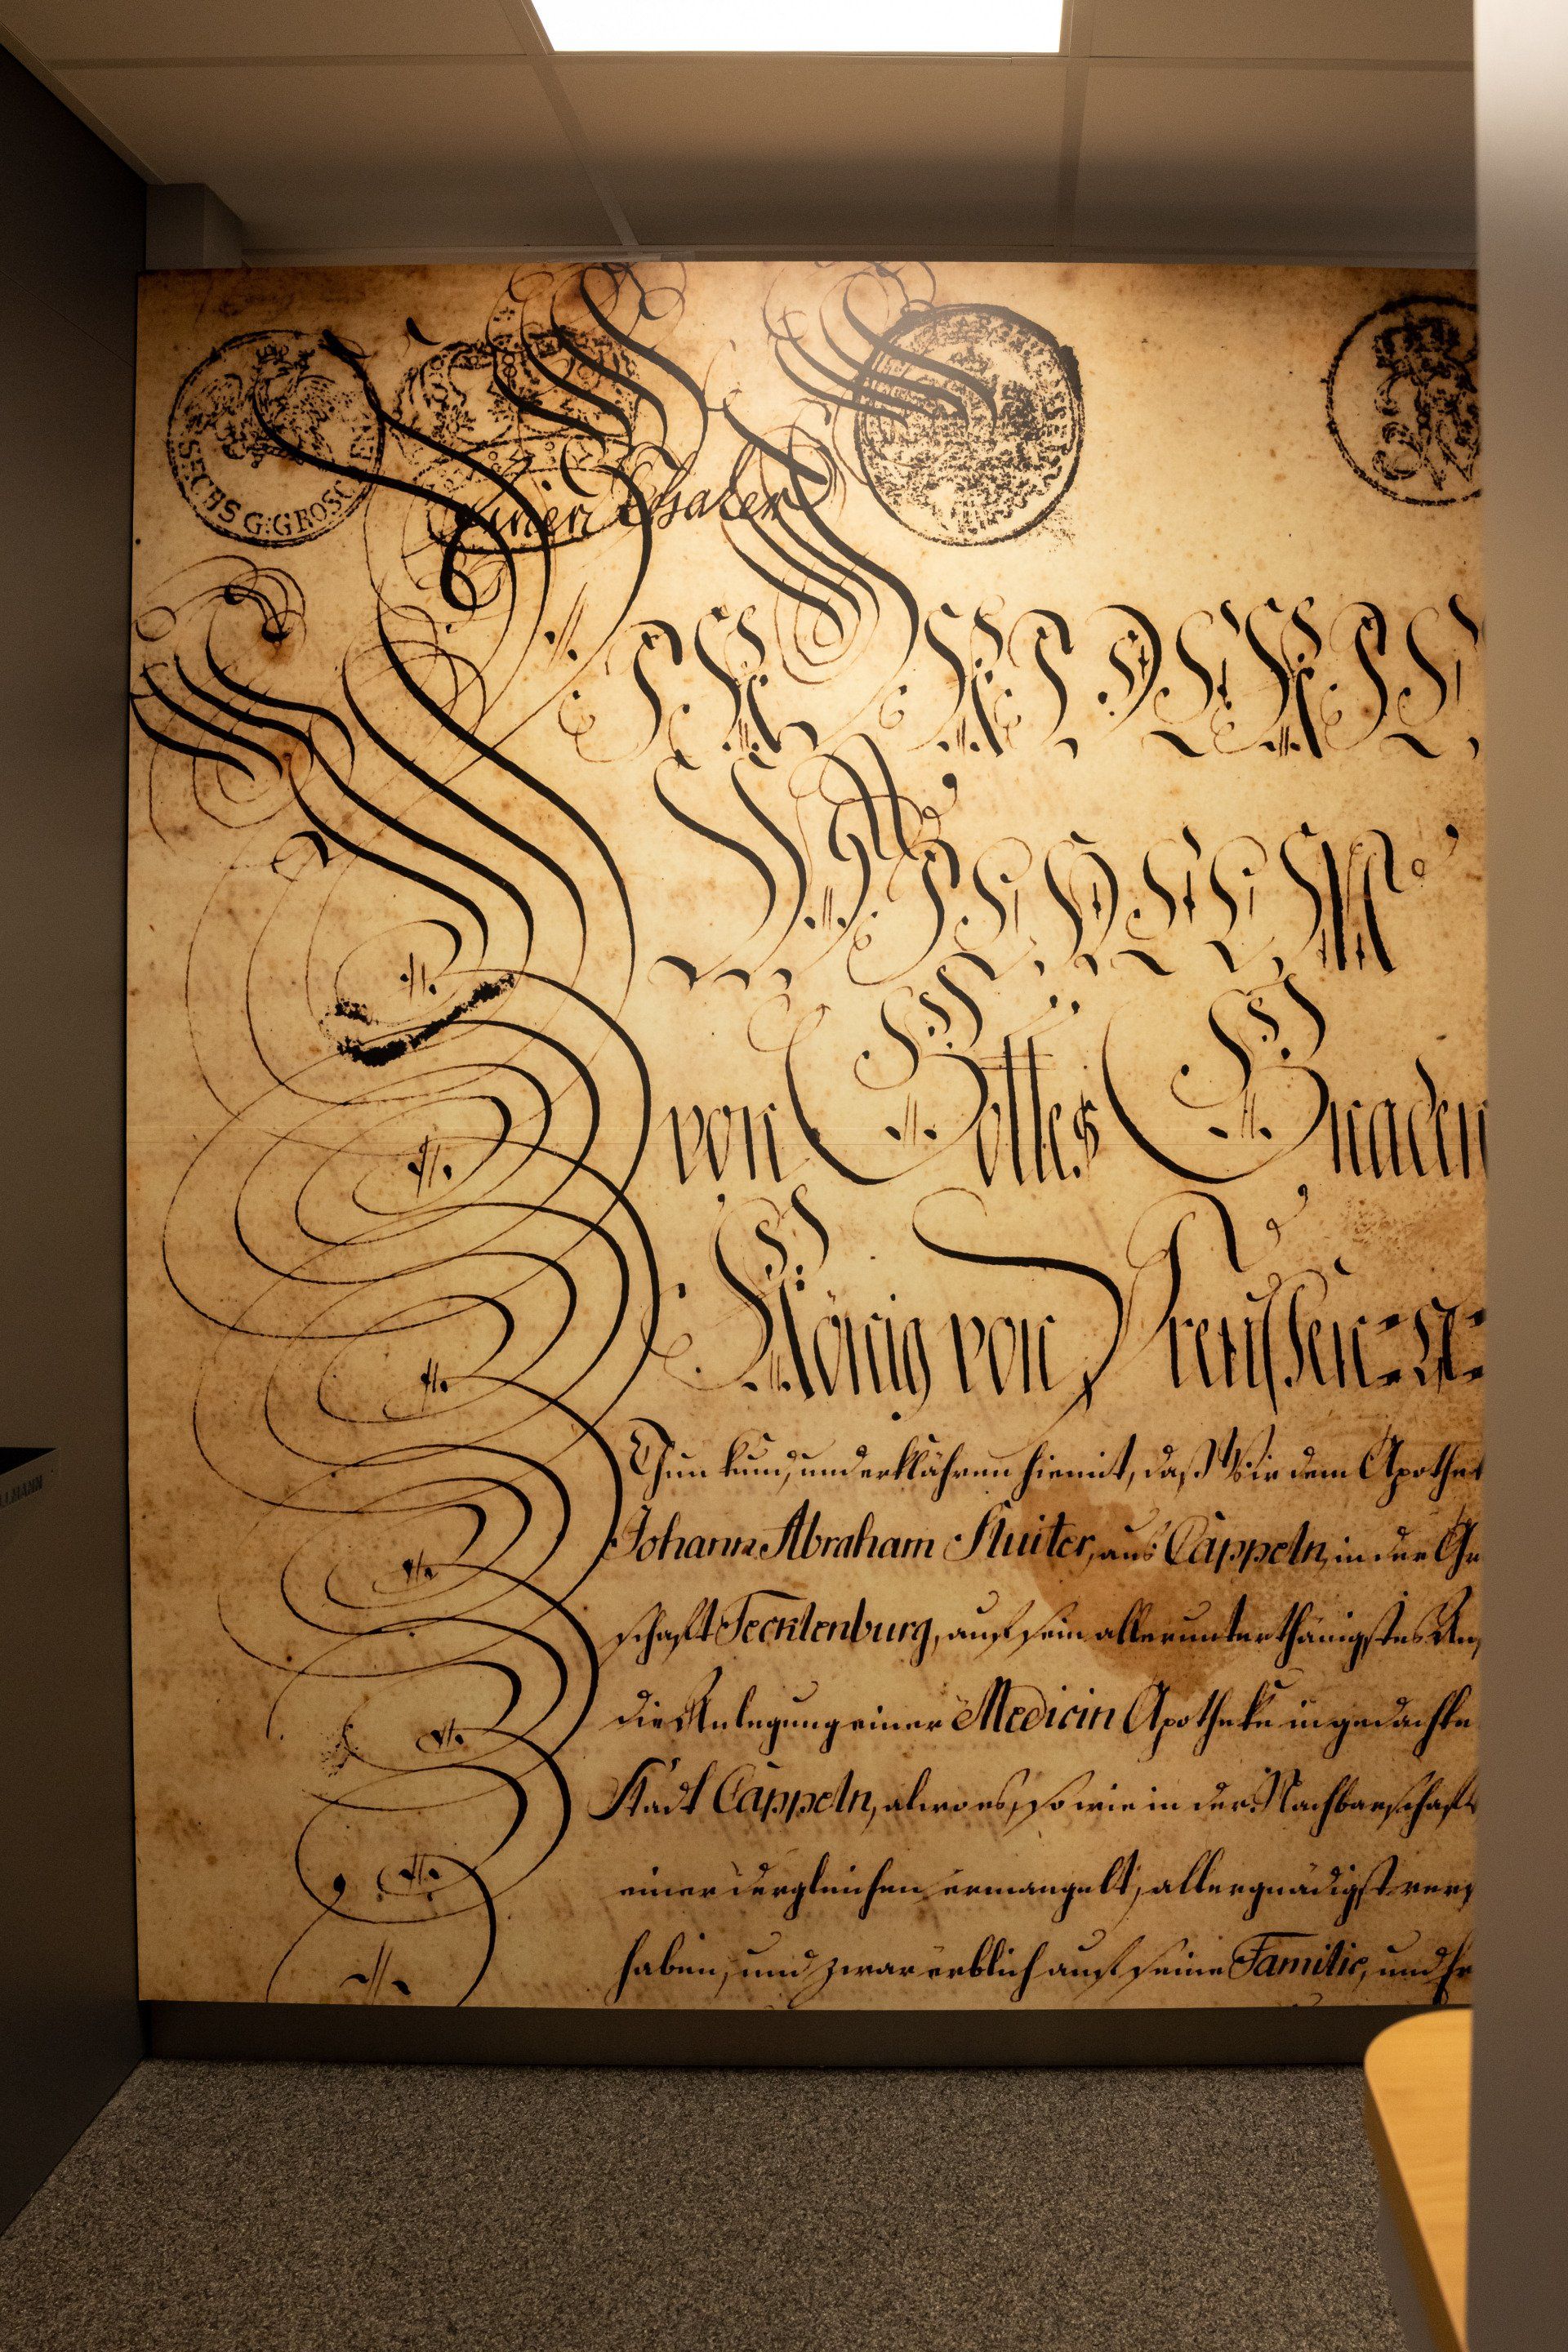 SECHS G: GROSCHEN
Einen Thaler
FRIEDERI
WILHELM
von Gottes Gnaden
König von Preußen
Thun kund, und erklähren hiemit, daß Wir dem Apothe
Johann Abraham Kluiter, aus Cappeln, in der Gr
schaft Tecklenburg, auf sein allerunterthänigstes An
die Anlegung einer Medicin Apotheke in gedachte
Stadt Cappeln, alwo es, so wie in der Nachbarschaft
einer dergleichen ermangelt, allergnädigst ver
haben, und zwar erblich auf seine Familie, und